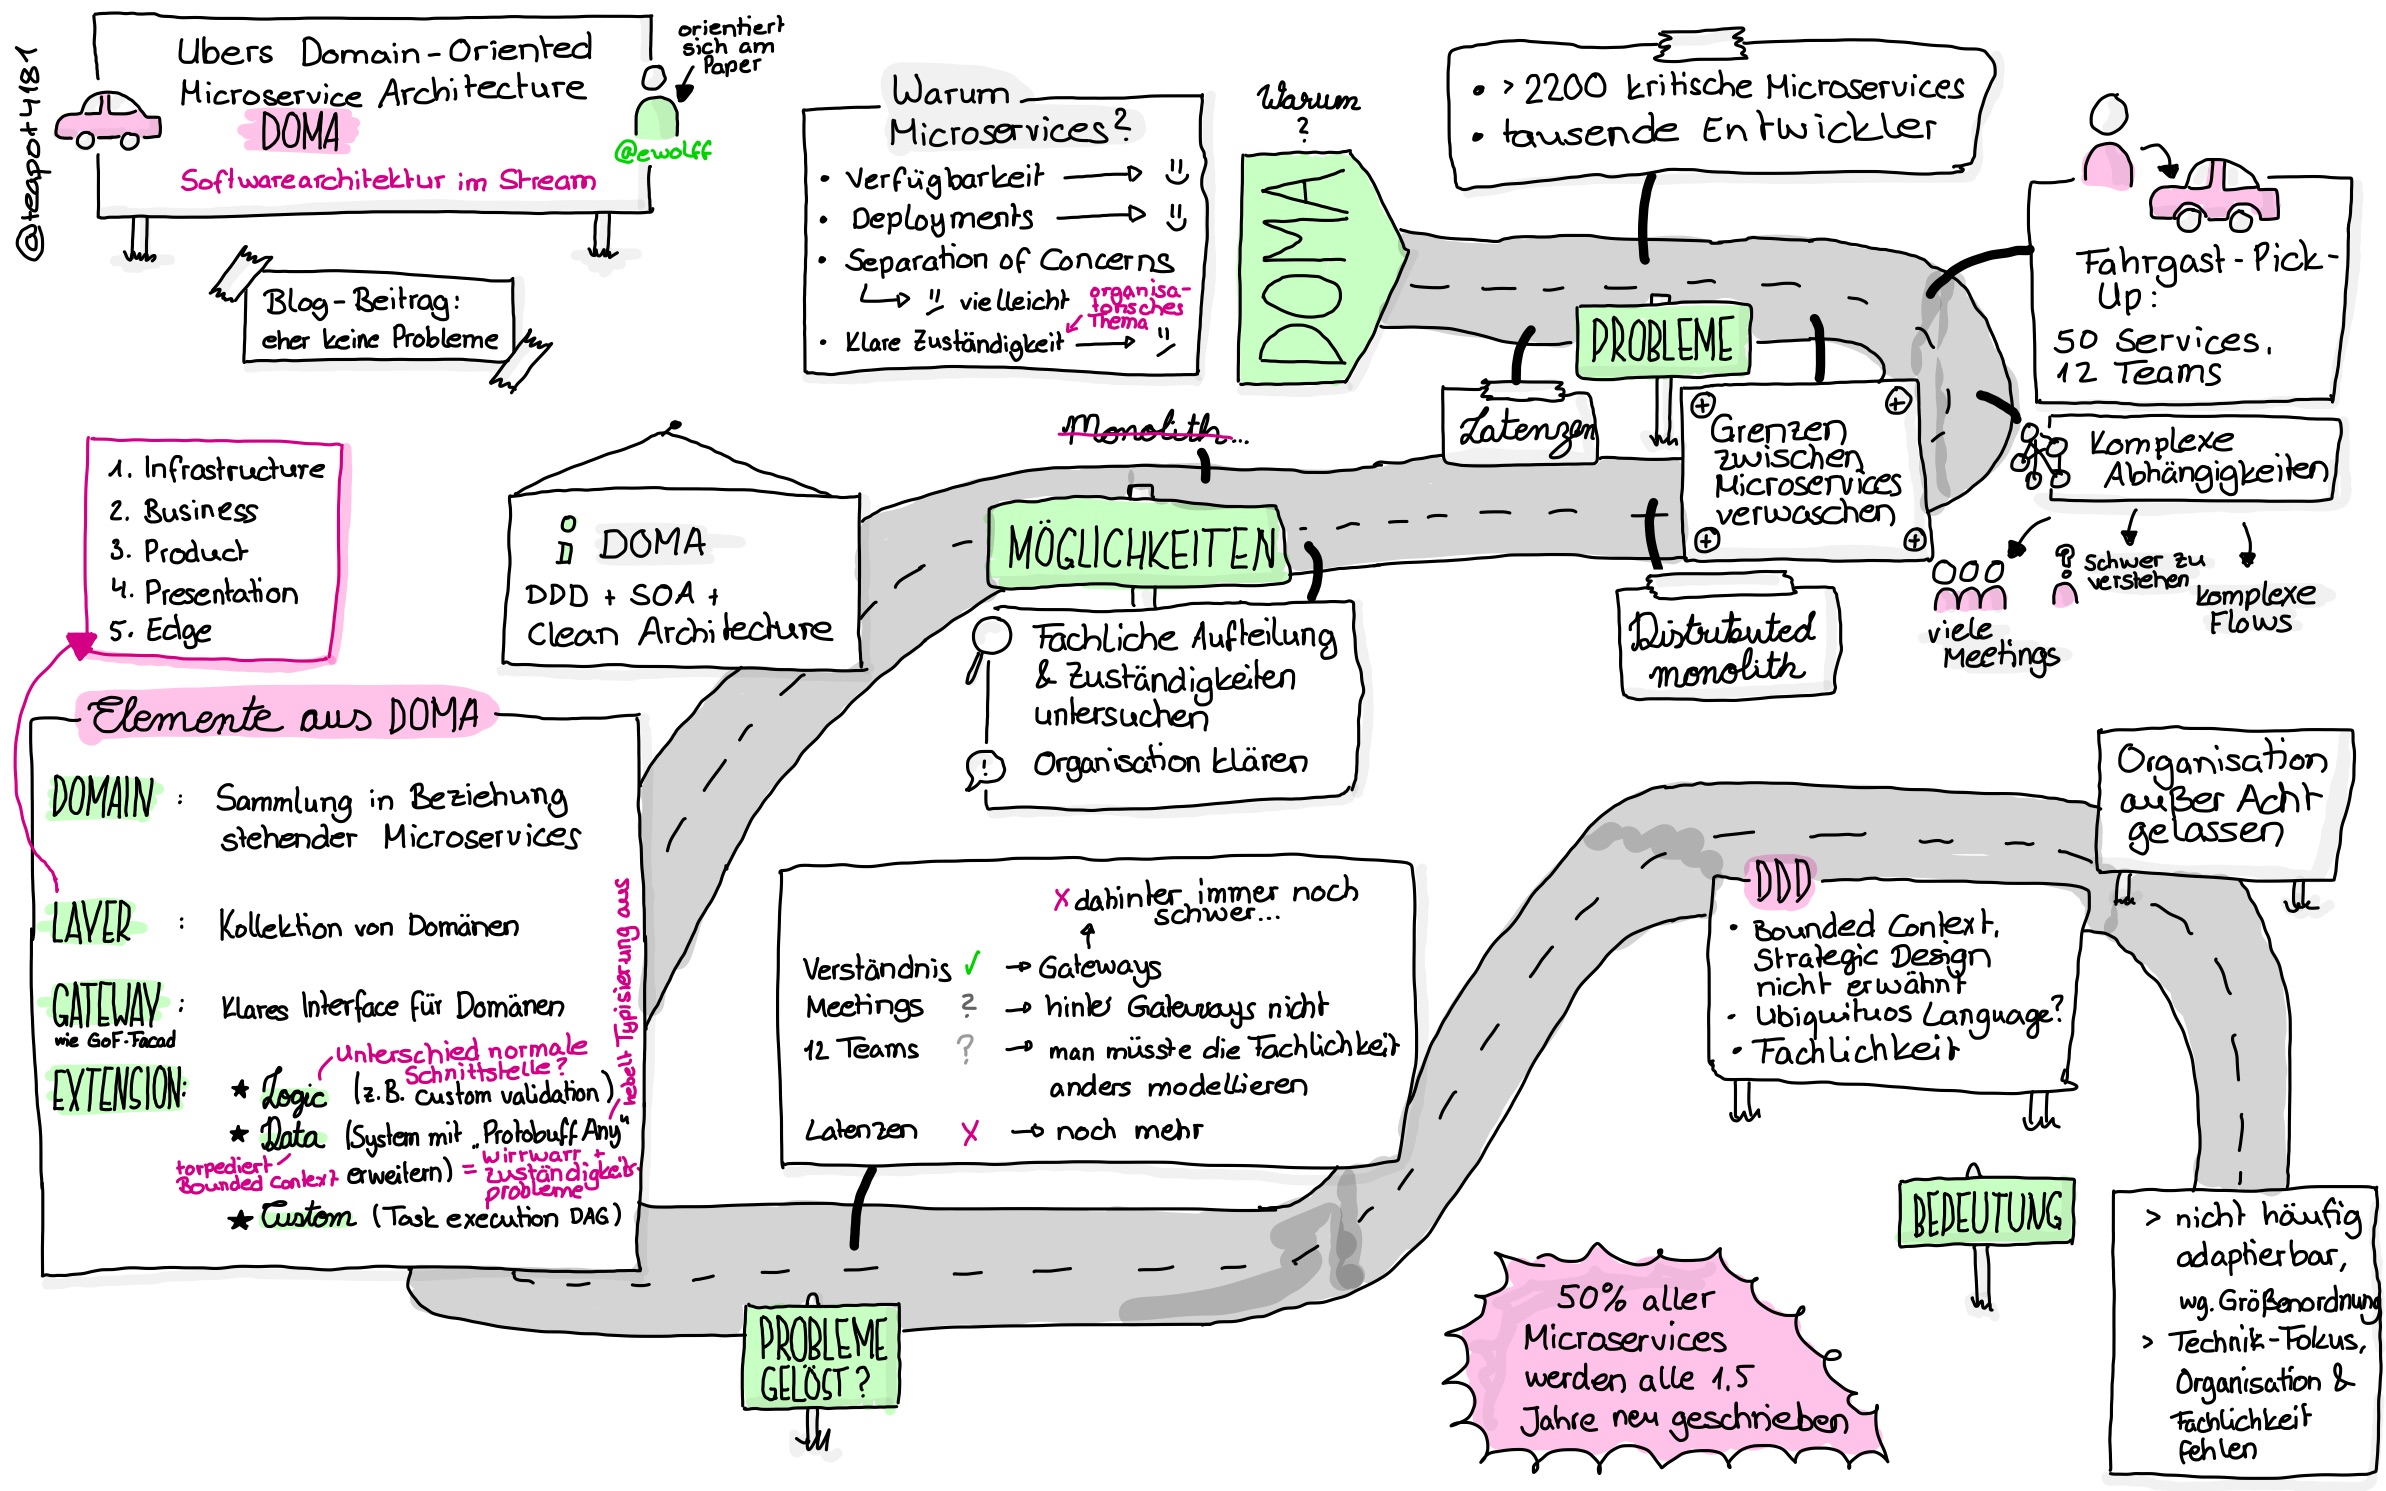 @teapot4181
Ubers Domain-Oriented
Microservice Architecture
DOMA
Softwarearchitektur im Stream
orientiert
sich am
Paper
@ewolff
Blog-Beitrag:
eher keine Probleme
Warum
Microservices?
• Verfügbarkeit
• Deployments
• Separation of Concerns
vielleicht
organisa-
torisches
Thema
• Klare Zuständigkeit
Warum
?
DOMA
• > 2200 kritische Microservices
• tausende Entwickler
PROBLEME
Fahrgast-Pick-
Up:
50 Services,
12 Teams
Latenzen
Grenzen
zwischen
Microservices
verwaschen
Komplexe
Abhängigkeiten
viele
Meetings
?
schwer zu
verstehen
komplexe
Flows
Distributed
monolith
Monolith...
MÖGLICHKEITEN
Fachliche Aufteilung
& Zuständigkeiten
untersuchen
!
Organisation klären
i DOMA
DDD + SOA +
Clean Architecture
1. Infrastructure
2. Business
3. Product
4. Presentation
5. Edge
Elemente aus DOMA
DOMAIN : Sammlung in Beziehung
stehender Microservices
LAYER : Kollektion von Domänen
GATEWAY : Klares Interface für Domänen
wie GoF-Facad
EXTENSION:
Unterschied normale
Schnittstelle?
★ Logic (z.B. custom validation)
★ Data (System mit „Protobuff Any"
erweitern)
hebelt Typisierung aus
torpediert
Bounded Context
= wirrwarr +
zuständigkeits-
probleme
★ Custom (Task execution DAG)
PROBLEME
GELÖST?
x dahinter immer noch
schwer...
Verständnis ✓ → Gateways
Meetings ? → hinter Gateways nicht
12 Teams ? → man müsste die Fachlichkeit
anders modellieren
Latenzen x → noch mehr
DDD
• Bounded Context,
Strategic Design
nicht erwähnt
• Ubiquituos Language?
• Fachlichkeit
Organisation
außer Acht
gelassen
BEDEUTUNG
> nicht häufig
adaptierbar,
wg. Größenordnung
> Technik-Fokus,
Organisation &
Fachlichkeit
fehlen
50% aller
Microservices
werden alle 1,5
Jahre neu geschrieben